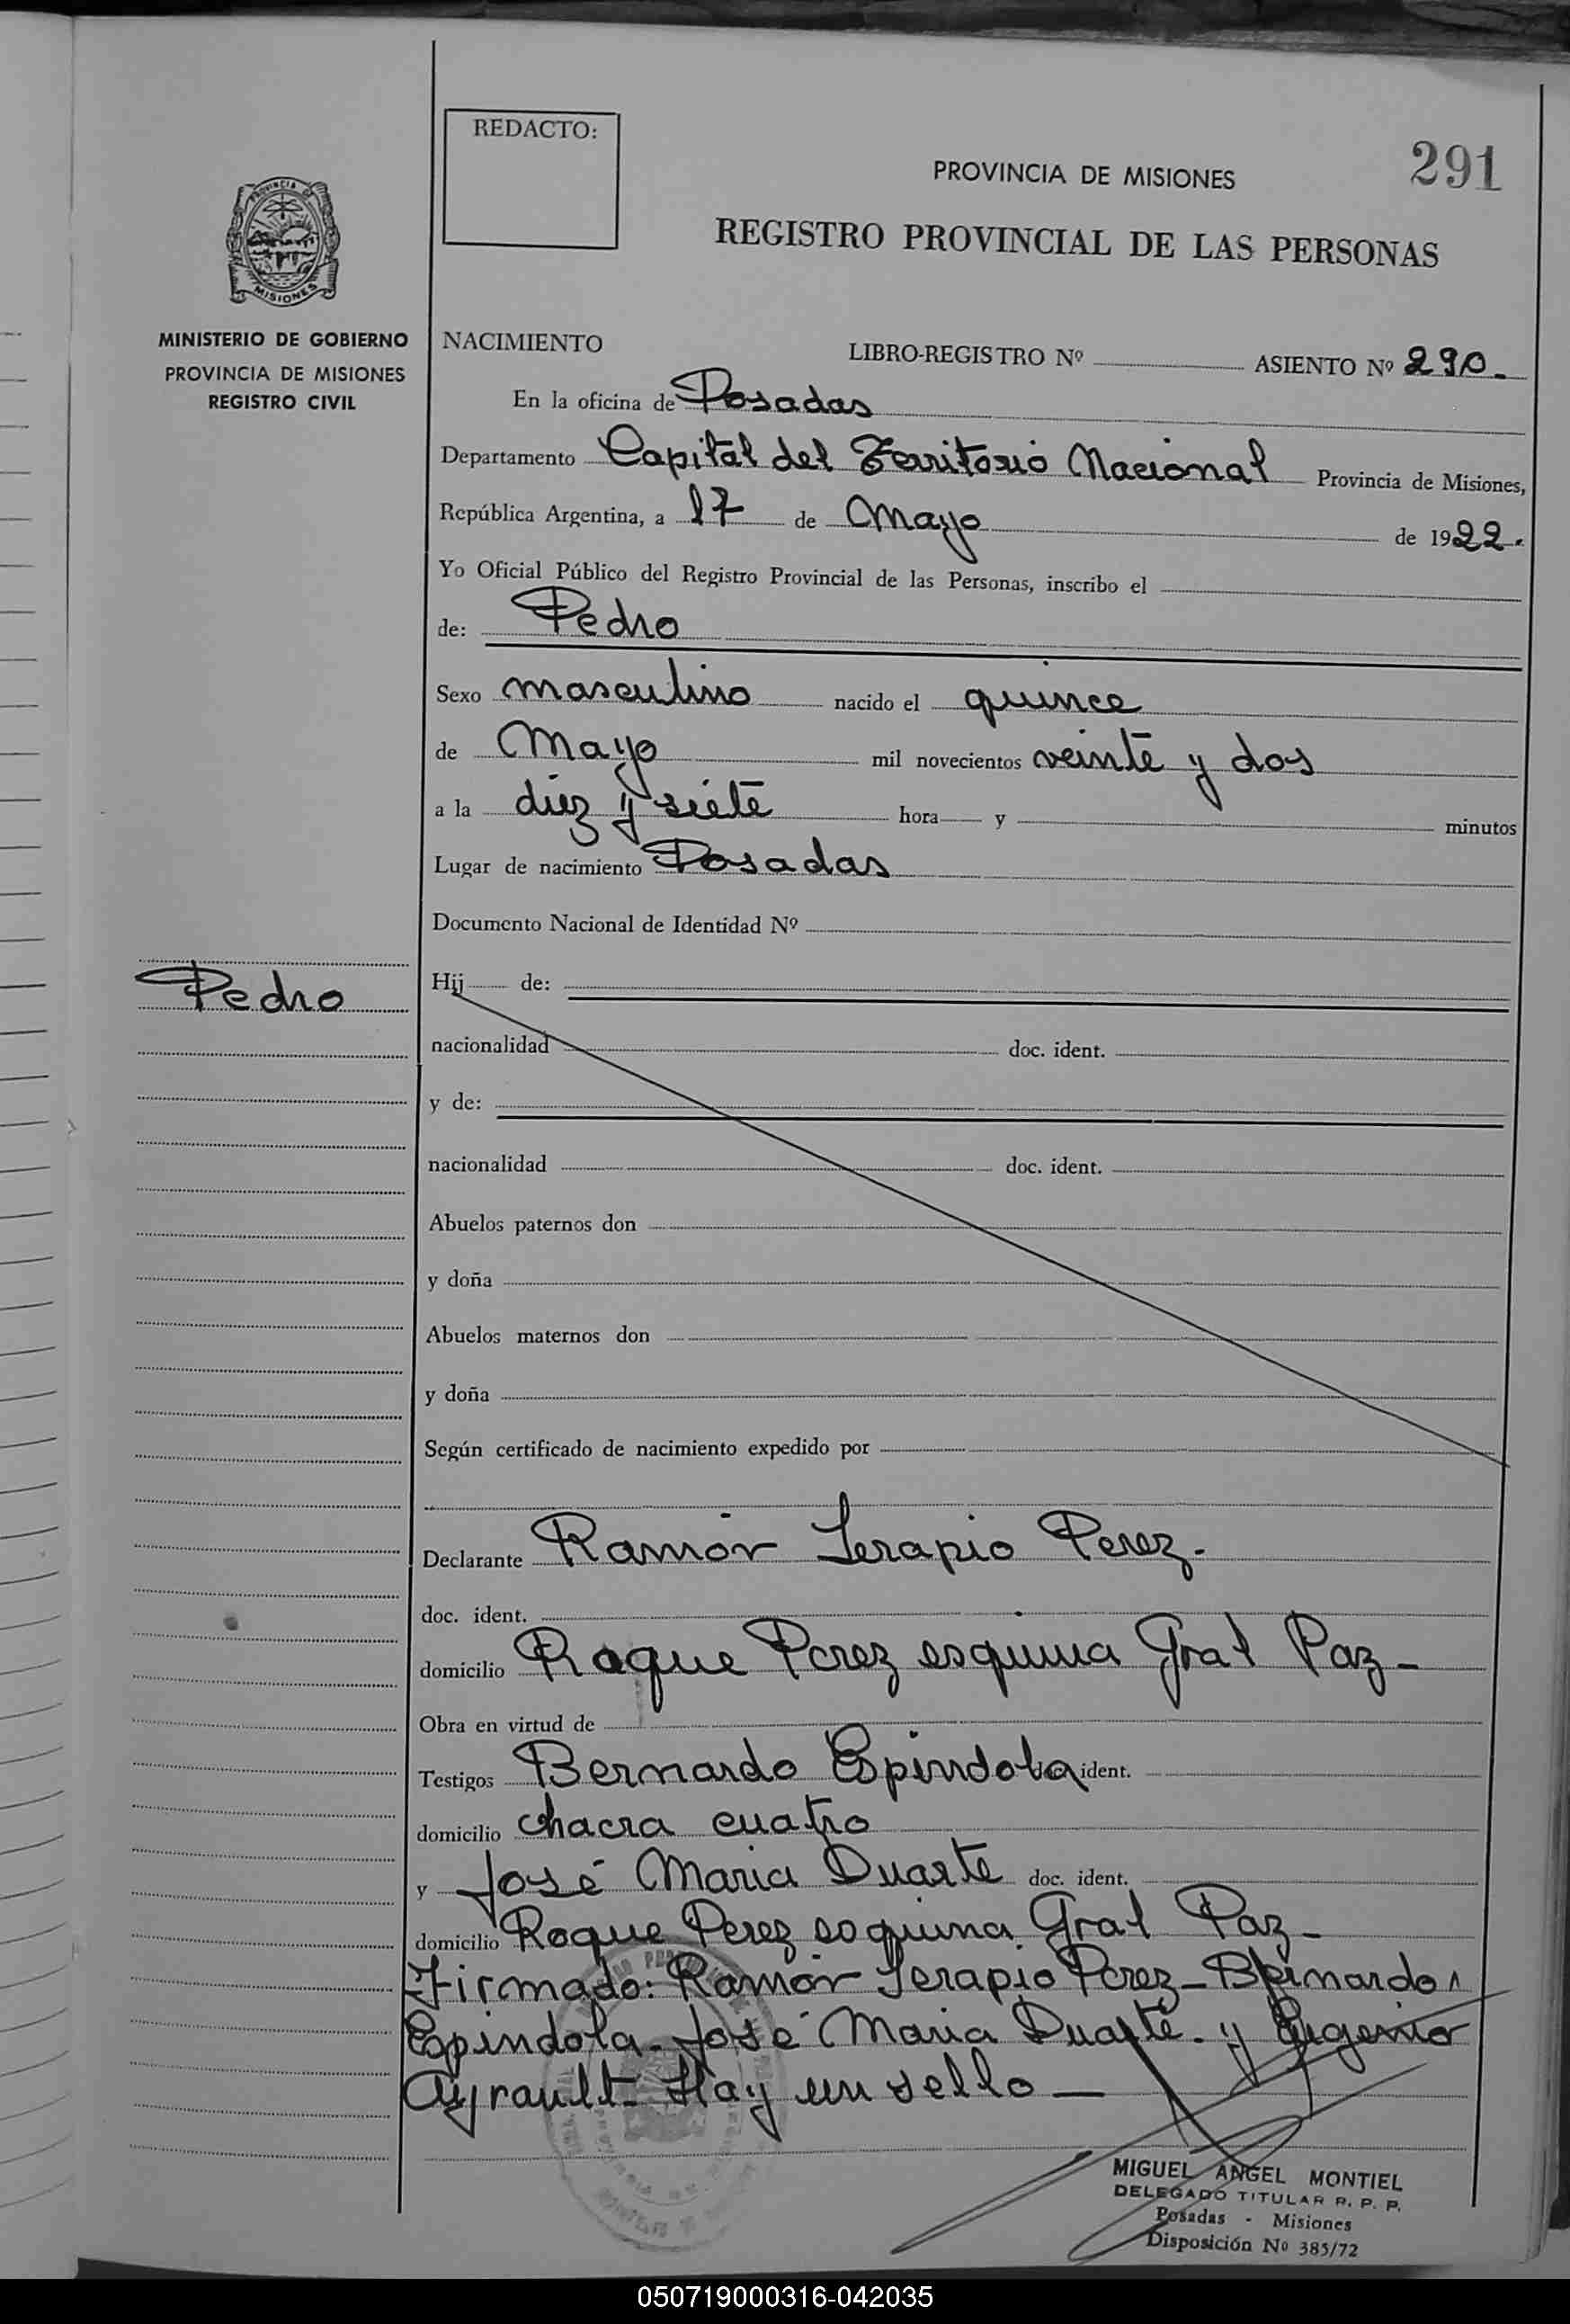 REDACTO:
PROVINCIA DE MISIONES
291
REGISTRO PROVINCIAL DE LAS PERSONAS
PROVINCIA DE
MISIONES
MINISTERIO DE GOBIERNO
PROVINCIA DE MISIONES
REGISTRO CIVIL
NACIMIENTO LIBRO-REGISTRO Nº ASIENTO Nº 290.
En la oficina de Posadas
Departamento Capital del Territorio Nacional Provincia de Misiones,
República Argentina, a 17 de Mayo de 1922.
Yo Oficial Público del Registro Provincial de las Personas, inscribo el
de: Pedro
Sexo masculino nacido el quince
de Mayo mil novecientos veinte y dos
a la diez y siete hora y minutos
Lugar de nacimiento Posadas
Documento Nacional de Identidad Nº
Pedro
Hij de:
nacionalidad doc. ident.
y de:
nacionalidad doc. ident.
Abuelos paternos don
y doña
Abuelos maternos don
y doña
Según certificado de nacimiento expedido por
Declarante Ramón Serapio Perez.
doc. ident.
domicilio Roque Perez esquina Gral Paz-
Obra en virtud de
Testigos Bernardo Espindola ident.
domicilio chacra cuatro
y José Maria Duarte doc. ident.
domicilio Roque Perez esquina Gral Paz-
Firmado: Ramón Serapio Perez- Bernardo
Espindola- José Maria Duarte. y Eugenio
Ayrault- Hay un sello-
MIGUEL ANGEL MONTIEL
DELEGADO TITULAR R. P. P.
Posadas - Misiones
Disposición Nº 385/72
050719000316-042035